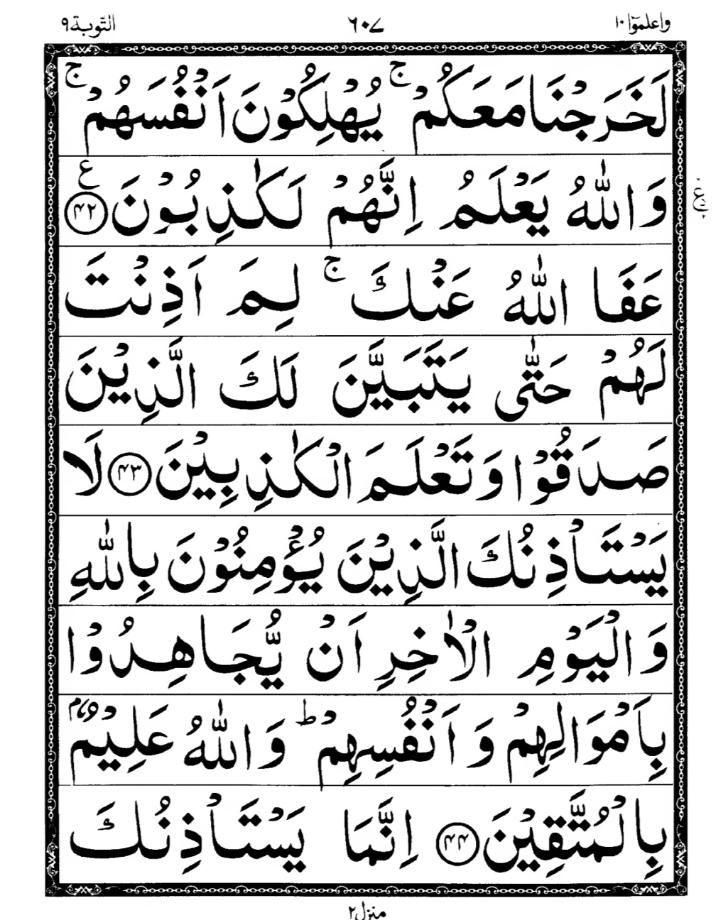 واعلموٓا ١٠ ٦٠٧ التوبة ٩
لَخَرَجْنَا مَعَكُمْ ۚ يُهْلِكُوْنَ اَنْفُسَهُمْ ۚ
وَاللّٰهُ يَعْلَمُ اِنَّهُمْ لَكٰذِبُوْنَ ﴿۴۲﴾ ع
عَفَا اللّٰهُ عَنْكَ ۚ لِمَ اَذِنْتَ
لَهُمْ حَتّٰى يَتَبَيَّنَ لَكَ الَّذِيْنَ
صَدَقُوْا وَتَعْلَمَ الْكٰذِبِيْنَ ﴿۴۳﴾ لَا
يَسْتَاْذِنُكَ الَّذِيْنَ يُؤْمِنُوْنَ بِاللّٰهِ
وَالْيَوْمِ الْاٰخِرِ اَنْ يُّجَاهِدُوْا
بِاَمْوَالِهِمْ وَاَنْفُسِهِمْ ؕ وَاللّٰهُ عَلِيْمٌۢ
بِالْمُتَّقِيْنَ ﴿۴۴﴾ اِنَّمَا يَسْتَاْذِنُكَ
منزل ٢